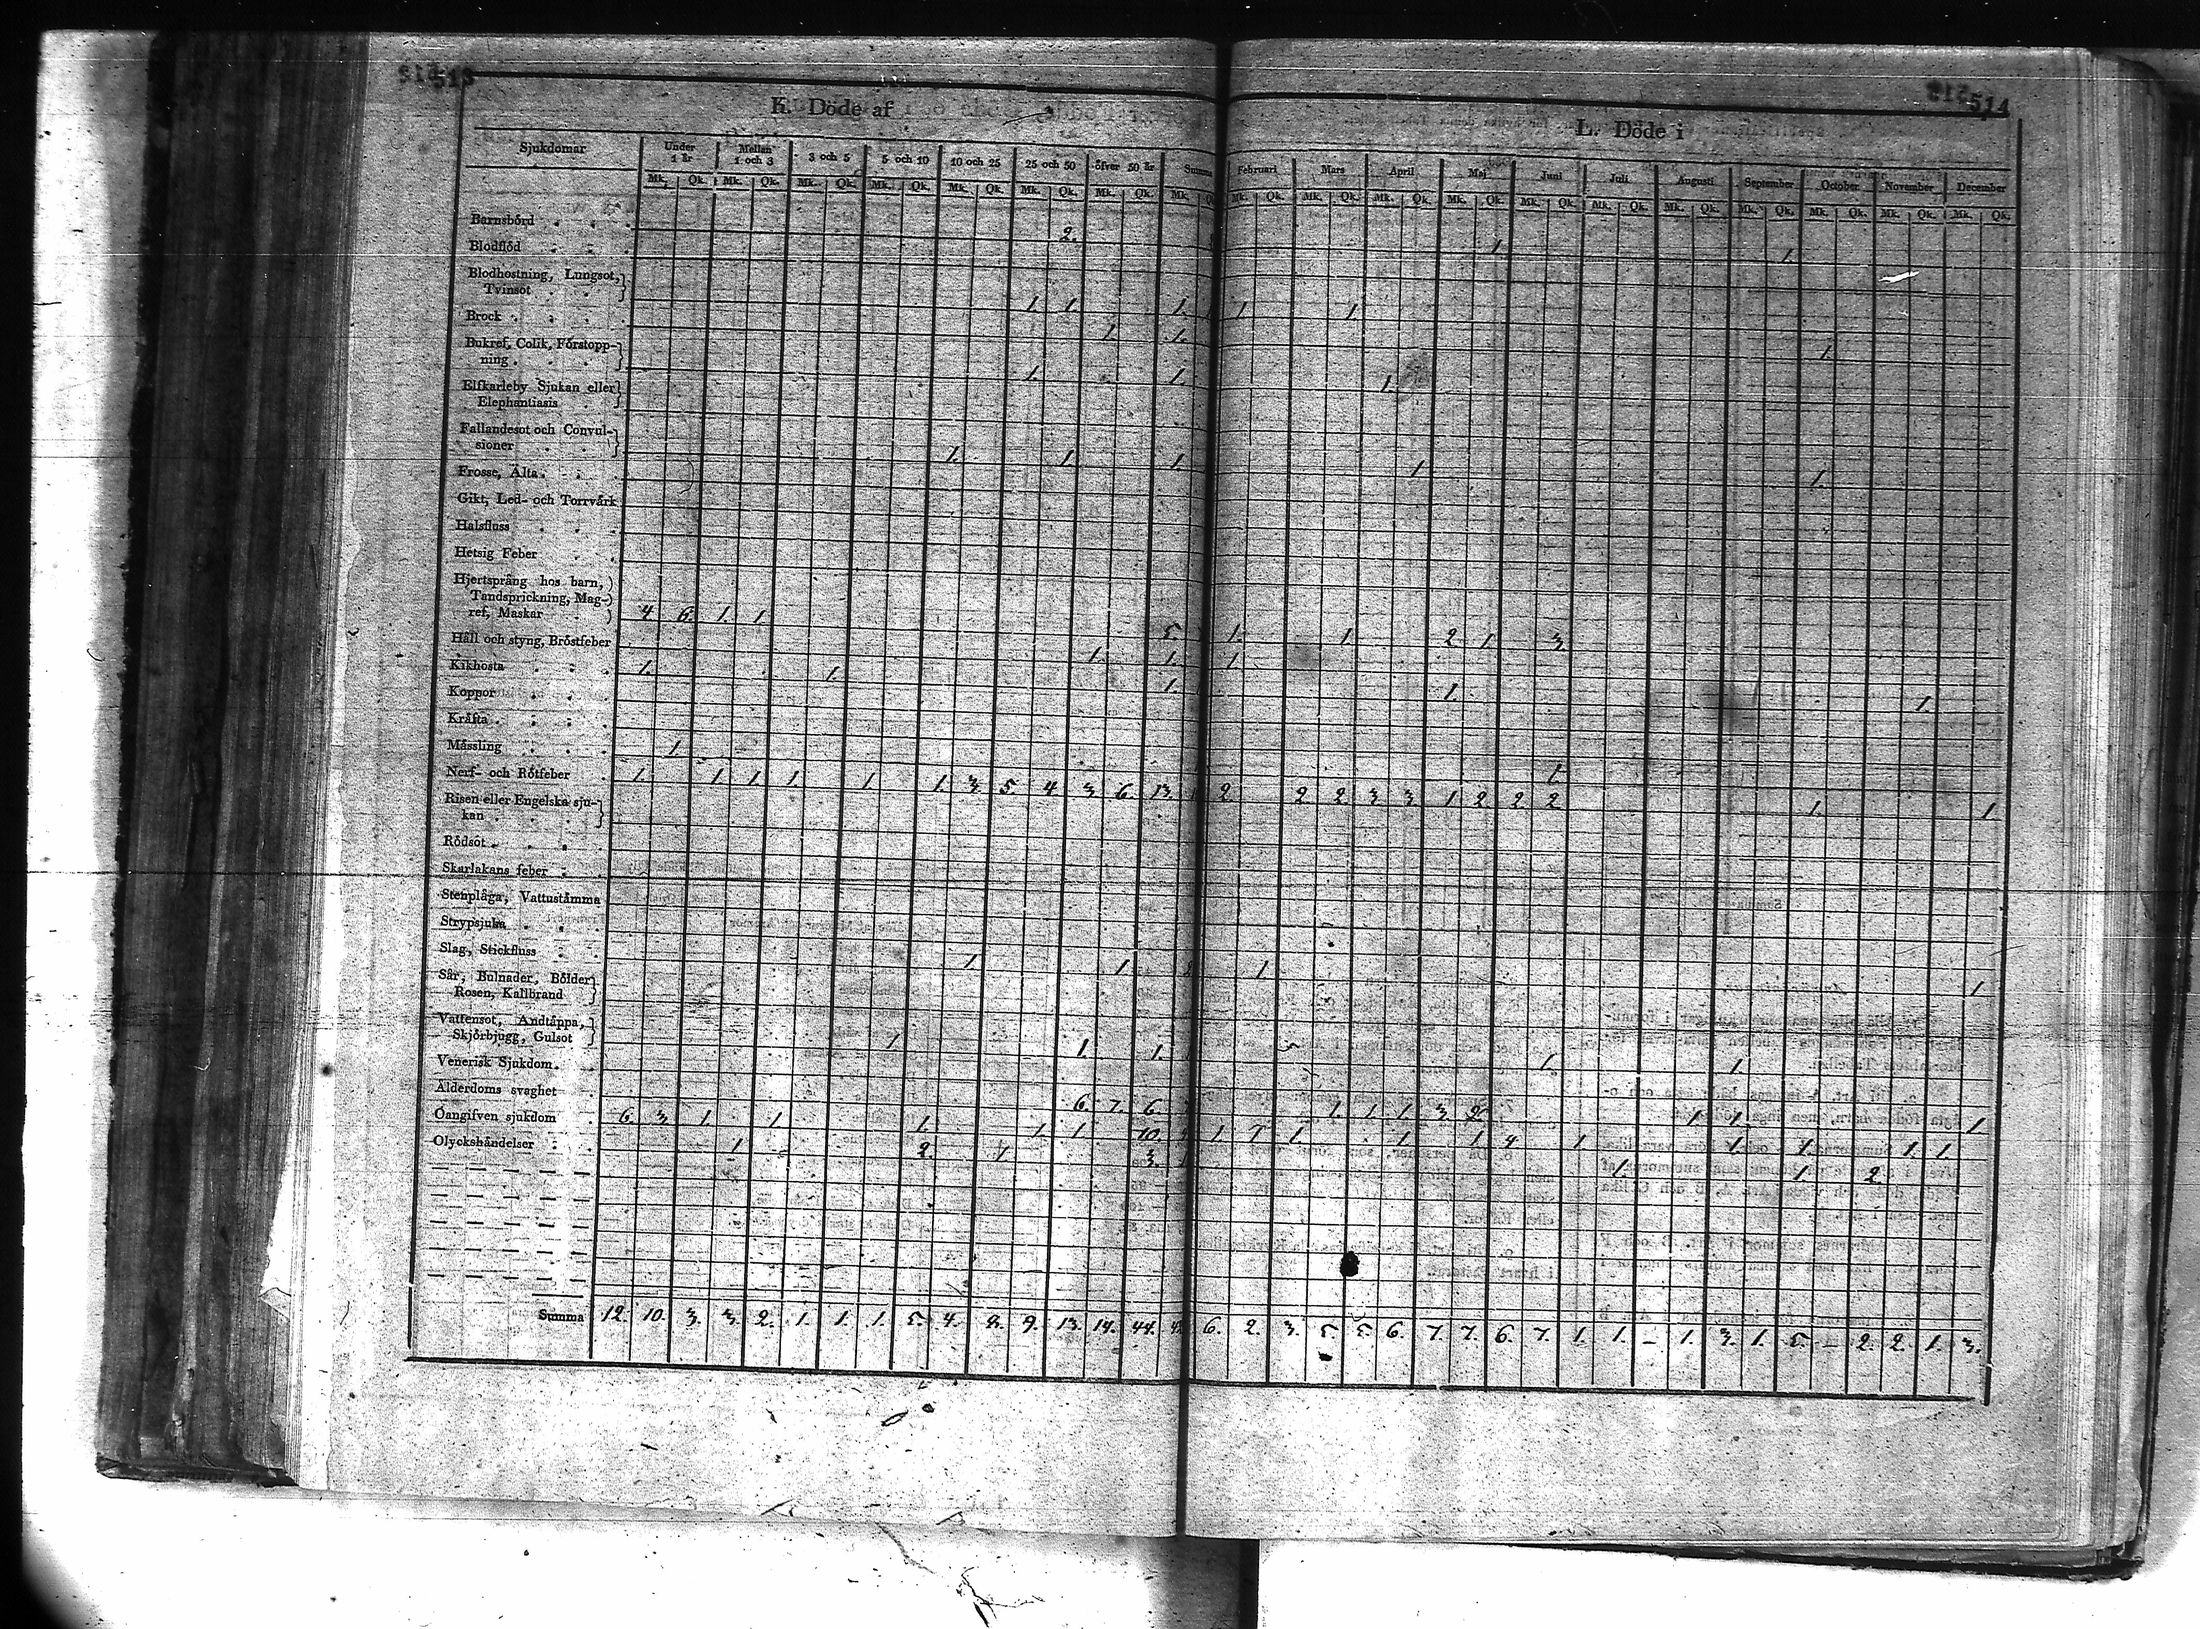 513
514
K. Döde af
L. Döde i
Sjukdomar Under 1 år Mellan 1 och 3 3 och 5 5 och 10 10 och 25 25 och 50 öfver 50 år Summa Februari Mars April Maj Juni Juli Augusti September October November December
Mk. Qk. Mk. Qk. Mk. Qk. Mk. Qk. Mk. Qk. Mk. Qk. Mk. Qk. Mk. Qk. Mk. Qk. Mk. Qk. Mk. Qk. Mk. Qk. Mk. Qk. Mk. Qk. Mk. Qk. Mk. Qk. Mk. Qk. Mk. Qk. Mk. Qk.
Barnsbörd 2. 1. 1
Blodflöd
Blodhostning, Lungsot,
Tvinsot 1. 1. 1. 1 1.
Brock 1. 1. 1.
Bukref, Colik, Förstopp-
ning 1. 1. 1.
Elfkarleby Sjukan eller
Elephantiasis
Fallandesot och Convul-
sioner 1. 1. 1. 1 1.
Frosse, Älta
Gikt, Led- och Torrvärk
Halsfluss
Hetsig Feber
Hjertsprång hos barn,
Tandsprickning, Mag-
ref, Maskar 4 6. 1. 1 5. 1. 1. 2 1 3.
Håll och styng, Bröstfeber 1. 1. 1.
Kikhosta 1. 1. 1. 1. 1.
Koppor
Kräfta
Mässling 1. 1.
Nerf- och Rötfeber 1. 1. 1. 1. 1. 1. 3. 5. 4. 3. 6. 13. 2. 2 2. 3 3. 1 2. 2 2 1. 1
Risen eller Engelska sju-
kan
Rödsot
Skarlakans feber
Stenplåga, Vattustämma
Strypsjuka
Slag, Stickfluss 1. 1. 1. 1
Sår, Bulnader, Bölder
Rosen, Kallbrand
Vattensot, Andtäppa,
Skjörbjugg, Gulsot 1. 1. 1. 1. 1.
Venerisk Sjukdom
Ålderdoms svaghet 6. 7. 6. 1. 1. 1. 3. 2. 1 1. 1.
Oangifven sjukdom 6. 3. 1. 1. 1. 1. 1. 10. 1 1. 1. 1. 4. 1. 1. 1. 1. 1.
Olyckshändelser 1. 2. 3. 1. 1. 2.
Summa 12. 10. 3. 3. 2. 1. 1. 1. 5. 4. 9. 13. 14. 44. 6. 2. 3. 5. 5. 6. 7. 7. 6. 7. 1. 1. – 1. 3. 1. 5. – 2. 2. 1. 3.